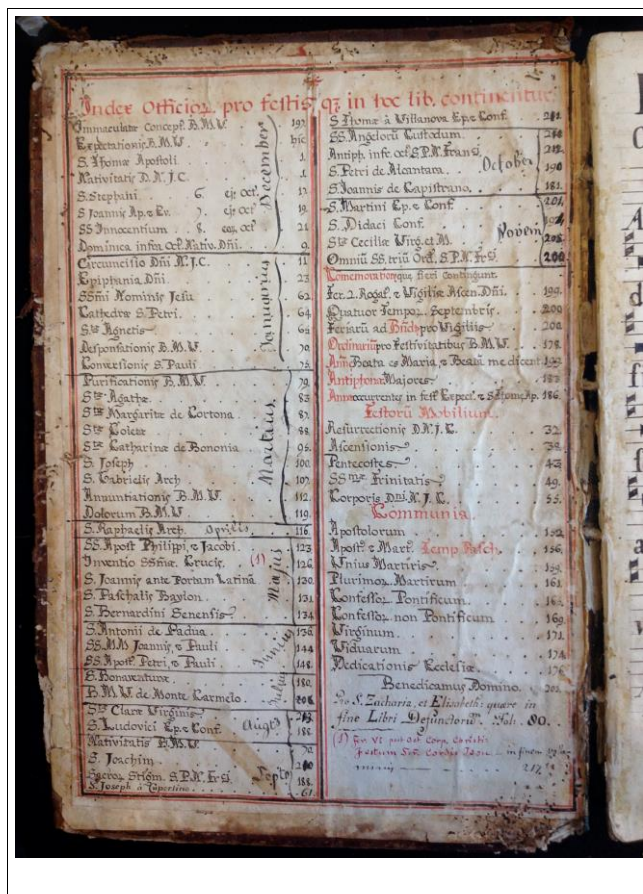 Index Officior. pro festis qz in hoc lib. continentur.
Immaculatæ Concept. B.M.V. 197
Expectationis B.M.V. hic
S. Thomæ Apostoli. 1.
Nativitatis D.N.J.C. 1
S. Stephani 6. ejs Oct. 12
S Joannis Ap. e Ev. 7. ejs Oct. 19.
SS Innocentium 8. Oct. 21
Dominica infra Oct. Nativ. Dñi. 9
December
Circumcisio Dñi N.J.C. 11
Epiphania Dñi. 23
SSm̃i Nominis Jesu 62
Cathedræ S. Petri. 64
S.tæ Agnetis
Desponsationis B.M.V. 70
Conversionis S. Pauli 75
Januarius
Purificationis B.M.V. 79
S.tæ Agathæ. 83
S.tæ Margaritæ de Cortona 87
S.tæ Coletæ 88
S.tæ Catharinæ de Bononia 95
S. Joseph 100
S. Gabrielis Arch 107
Annuntiationis B.M.V. 112
Dolorum B.M.V. 119
Martius
S. Raphaelis Arch. Aprilis 116
SS. Apost Philippi, e Jacobi. 123
Inventio SSmæ. Crucis. (1) 126
S. Joannis ante Portam Latinã 130
S. Paschalis Baylon. 131
S. Bernardini Senensis 134
Majus
S. Antonii de Padua. 136
SS. MM Joannis, e Pauli 144
SS. Apost. Petri, e Pauli 148
Junius
S. Bonaventuræ. 180
B.M.V. de Monte Carmelo. 208
Julius
S.tæ Claræ Virginis
S. Ludovici Ep. e Conf. 188
Augts
Nativitatis B.M.V. 70
S. Joachim 210
Sacror. Stigm. S.P.N. Frsi. 188
S. Joseph à Cupertino 61
Septe
S. Thomæ à Villanova Ep. e Conf. 211
SS. Angelorũ Custodum.
Antiph. infr. oct. S.P.N. Fransi. 212
S. Petri de Alcantara. 190
S. Joannis de Capistrano. 181
October
S. Martini Ep. e Conf. 201
S. Didaci Conf. 192
S.tæ Ceciliæ Virg. et M. 205
Omniũ SS. triũ Ord. S.P.N. Frsi. 200
Novem
Comemorationque fieri contingunt.
Fer. 2. Rogat. e Vigiliæ Ascen. Dñi. 199
Quatuor Tempor. Septembris. 200
Feriarũ ad Bñdicts pro Vigiliis 202
Ordinariũ pro Festivitatibus B.M.V. 178
Anñe Beata es Maria, e Beatã me dicent 193
Antiphonæ Majores. 187
Anñe occurrentes in fest. Expect. e S. Thomæ Ap. 186
Festorũ Mobilium.
Resurrectionis D.N.J.C. 32
Ascensionis 38
Pentecostes 43
SS mæ Trinitatis 49
Corporis Dñi. N.J.C. 55
Communia.
Apostolorum 152
Apost. e Mart. Temp. Pasch. 156
Unius Martiris 159
Plurimor. Martirum 161
Confessor. Pontificum 165
Confessor. non Pontificum 169
Virginum 171
Viduarum 174
Dedicationis Ecclesiæ 176
Benedicamus Domino. 205
Pro S. Zacharia, et Elisabeth: quære in
fine Libri Defunctorum. Fol. 80.
(1) Fer. VI post Oct. Corp. Christi
Festum Sm̃i Cordis Jesu in finem
217